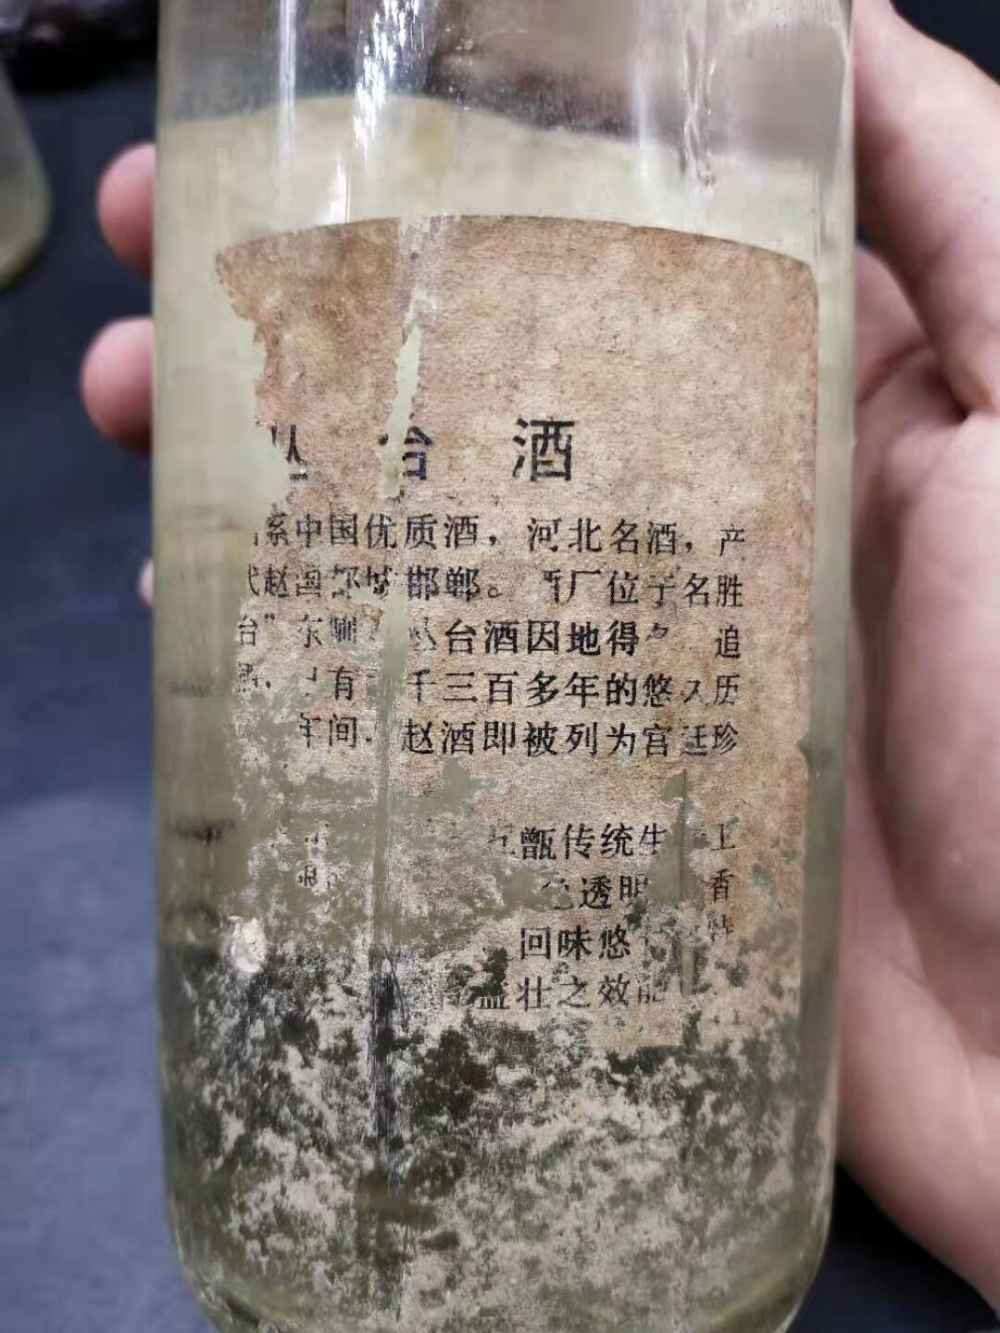 丛台酒
系中国优质酒，河北名酒，产
代赵国都城邯郸。酒厂位于名胜
台”东侧 丛台酒因地得名 追
有 千三百多年的悠久历
年间，赵酒即被列为宫廷珍
甑传统生 工
色透明 香
回味悠 特
益壮之效能